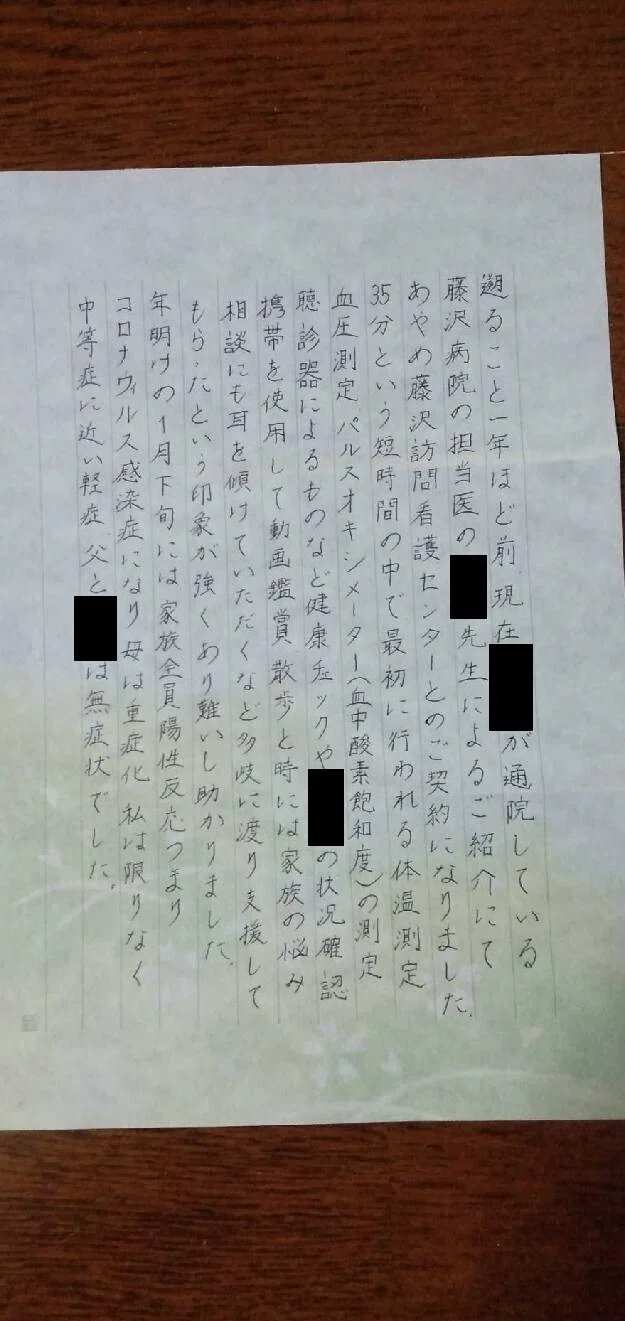 遡ること一年ほど前現在 が通院している
藤沢病院の担当医の 先生によるご紹介にて
あやめ藤沢訪問看護センターとのご契約になりました。
35分という短時間の中で最初に行われる体温測定
血圧測定パルスオキシメーター(血中酸素飽和度)の測定
聴診器によるものなど健康チェックや の状況確認
携帯を使用して動画鑑賞散歩と時には家族の悩み
相談にも耳を傾けていただくなど多岐に渡り支援して
もらったという印象が強くあり難いし助かりました。
年明けの1月下旬には家族全員陽性反応つまり
コロナウィルス感染症になり母は重症化 私は限りなく
中等症に近い軽症、父と は無症状でした。